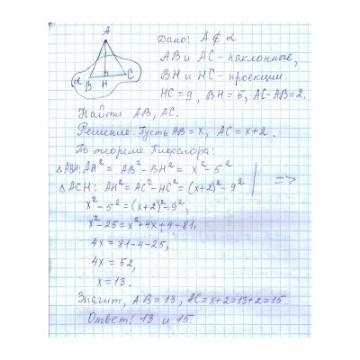 A
α
B H C
Дано: A ∉ α
AB и AC - наклонные,
BH и HC - проекции.
HC = 9, BH = 5, AC-AB=2.
Найти AB, AC.
Решение. Пусть AB = x, AC = x+2.
По теореме Пифагора:
△ABH: AH² = AB² - BH² = x² - 5²
△ACH: AH² = AC² - HC² = (x+2)² - 9² | =>
x² - 5² = (x+2)² - 9²,
x² - 25 = x² + 4x + 4 - 81,
4x = 81 - 4 - 25,
4x = 52,
x = 13.
Значит, AB = 13, AC = x+2 = 13+2 = 15.
Ответ: 13 и 15.